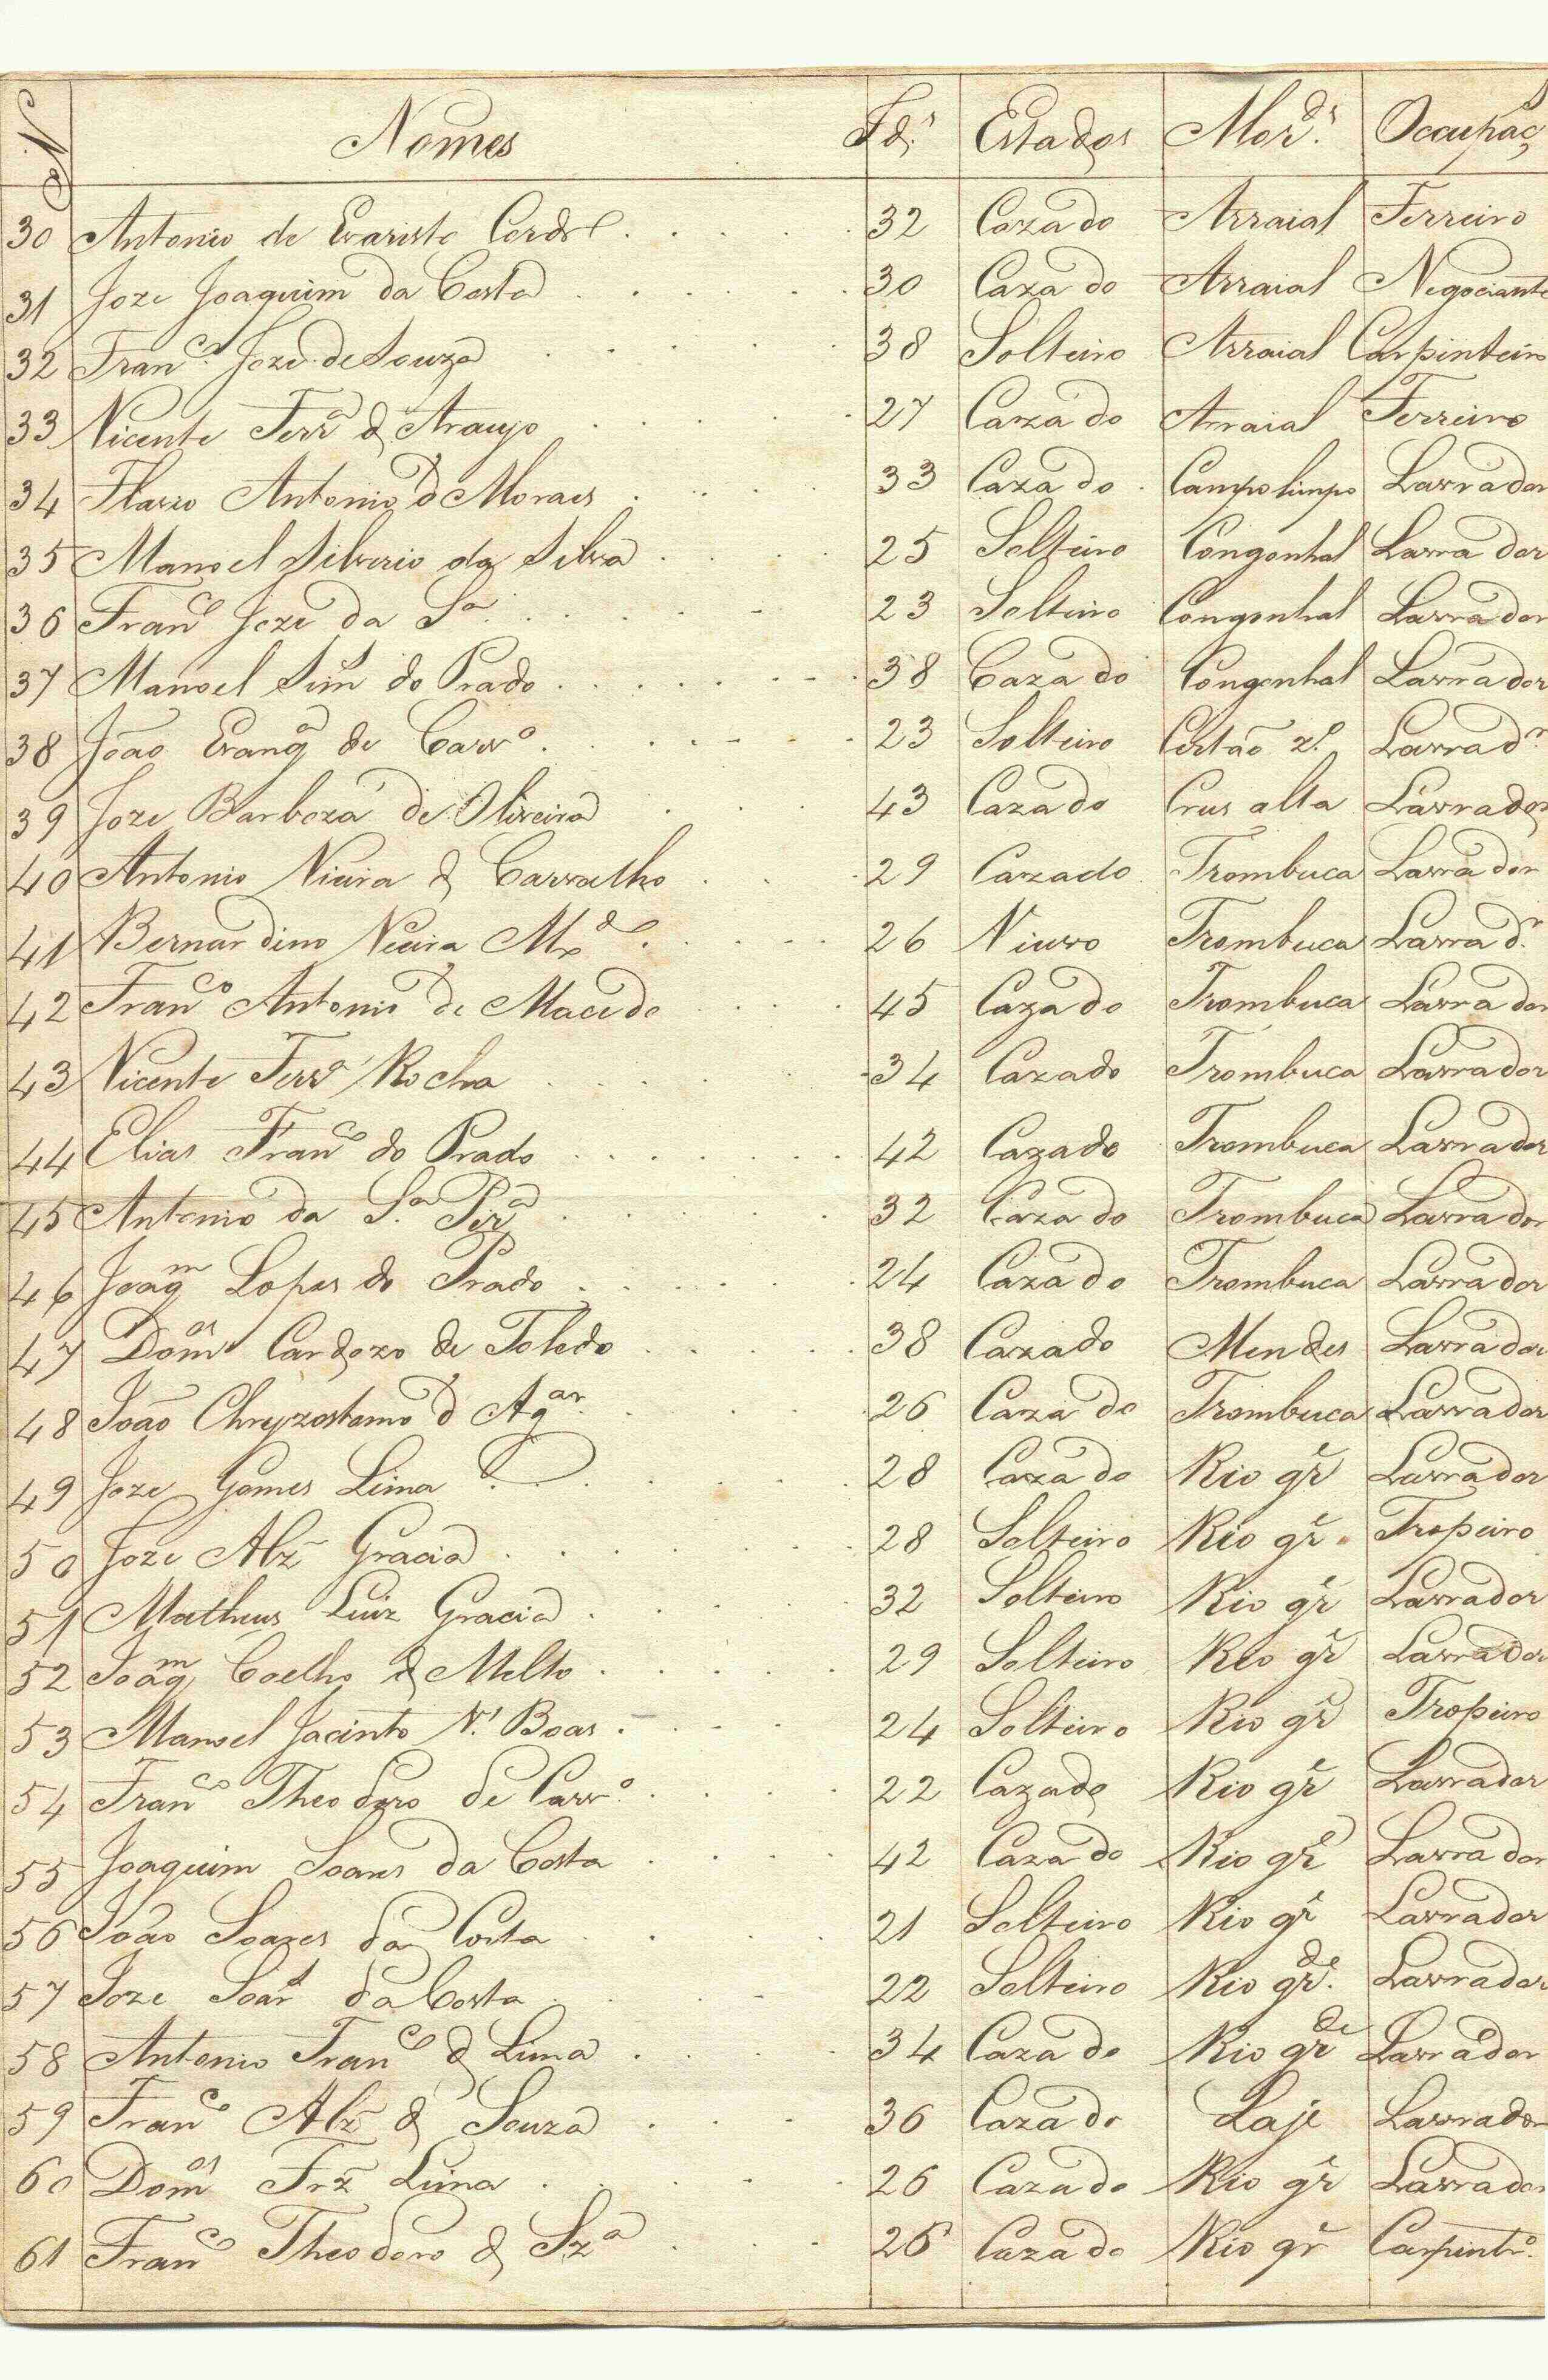 N Nomes Id.s Estados Mor.ds Occupaç
30 Antonio de Evaristo Cordrl 32 Cazado Arraial Ferreiro
31 Joze Joaquim da Costa 30 Cazado Arraial Negociante
32 Franco Joze de Souza 38 Solteiro Arraial Carpinteiro
33 Vicente Ferra d Araujo 27 Cazado Arraial Ferreiro
34 Flavio Antonio d Moraes 33 Cazado Campo limpo Lavrador
35 Manoel Silverio da Silva 25 Solteiro Congonhal Lavrador
36 Franco Joze da Sa 23 Solteiro Congonhal Lavrador
37 Manoel do Prado 38 Cazado Congonhal Lavrador
38 João Evanga de Carvo 23 Solteiro Certão Lavrador
39 Joze Barboza de Oliveira 43 Cazado Crus alta Lavrador
40 Antonio Vieira d Carvalho 29 Cazado Trombuca Lavrador
41 Bernardino Vieira 26 Viuvo Trombuca Lavradr
42 Franco Antonio de Macedo 45 Cazado Trombuca Lavrador
43 Vicente Ferra Rocha 34 Cazado Trombuca Lavrador
44 Elias Franco do Prado 42 Cazado Trombuca Lavrador
45 Antonio da S.a Pira 32 Cazado Trombuca Lavrador
46 Joaqm Lopes do Prado 24 Cazado Trombuca Lavrador
47 Domos Cardozo de Toledo 38 Cazado Mendes Lavrador
48 João Chryzostomo d Agar 26 Cazado Trombuca Lavrador
49 Joze Gomes Lima 28 Cazado Rio gre Lavrador
50 Joze Alz Gracia 28 Solteiro Rio gre Tropeiro
51 Matheus Luiz Gracia 32 Solteiro Rio gre Lavrador
52 Joaqm Coelho d Mello 29 Solteiro Rio gre Lavrador
53 Manoel Jacinto V.s Boas 24 Solteiro Rio gre Tropeiro
54 Franco Theodoro de Carvo 22 Cazado Rio gre Lavrador
55 Joaquim Soares da Costa 42 Cazado Rio gre Lavrador
56 João Soares da Costa 21 Solteiro Rio gre Lavrador
57 Joze Soars da Costa 22 Solteiro Rio gr.de Lavrador
58 Antonio Franco d Lima 34 Cazado Rio grde Lavrador
59 Franco Alz d Souza 36 Cazado Laje Lavrador
60 Domos Frz Lima 26 Cazado Rio gre Lavrador
61 Franco Theodoro d Sza 26 Cazado Rio gr Carpintro